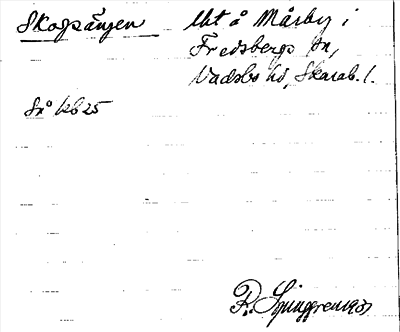 Skogsängen lht å Mårby i
Fredsbergs sn,
Vadsbo hd, Skarab. l.
Så kb 25
R. Ljunggren